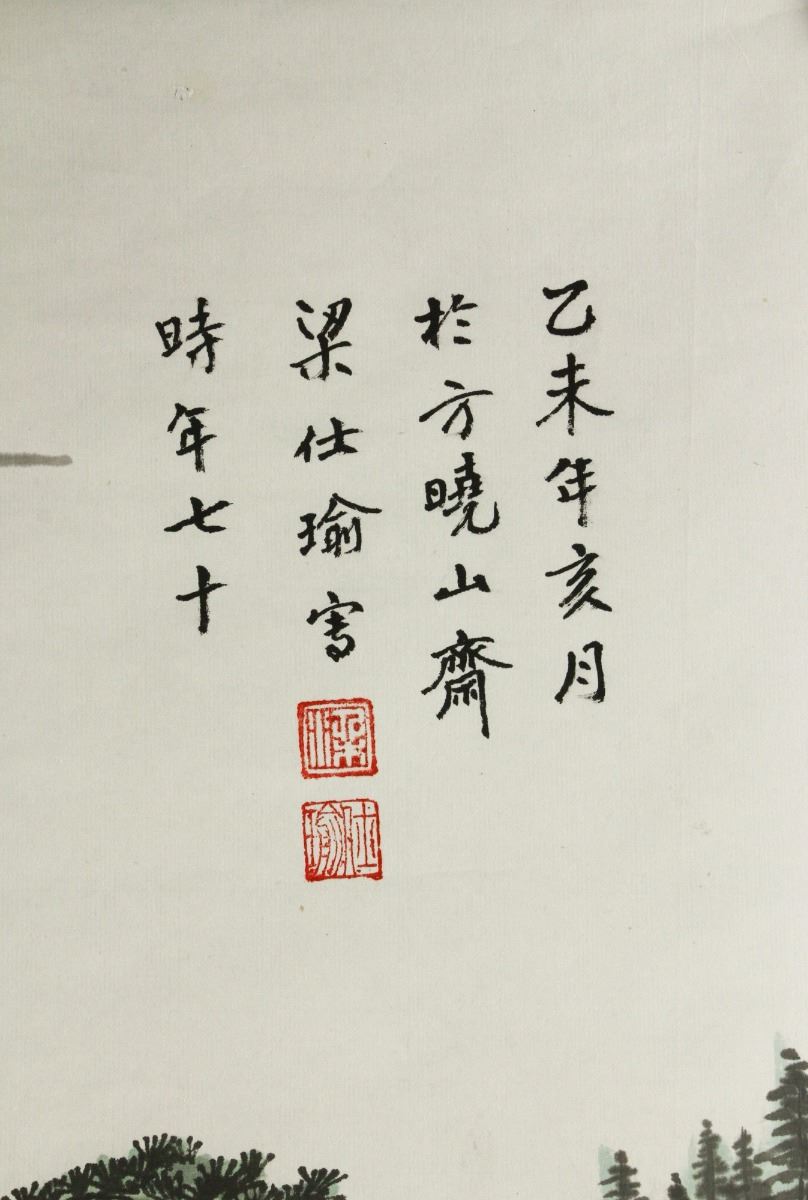 乙未年亥月
於方曉山齋
梁仕瑜寫
時年七十
梁
仕瑜